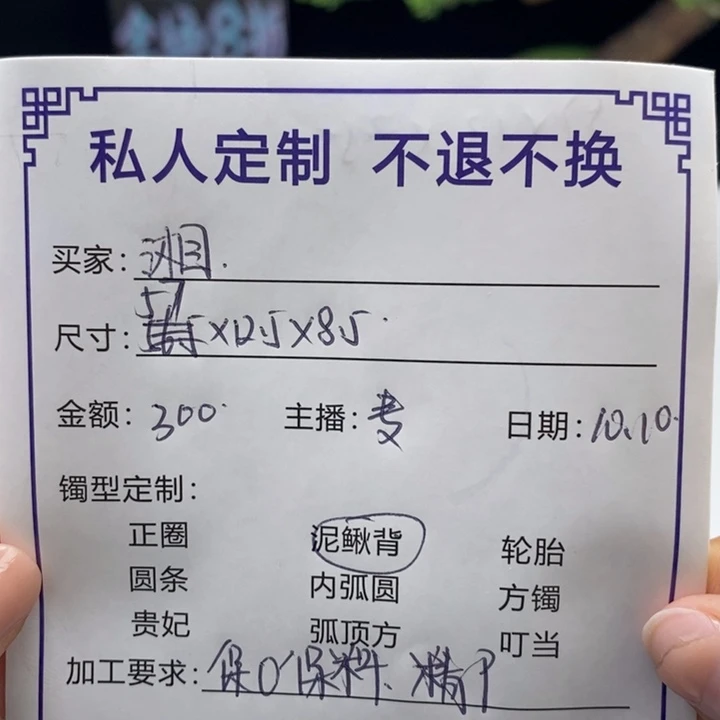 私人定制 不退不换
买家:
尺寸: 57 ×12.5×8.5
金额: 300 主播: 日期: 10.10
镯型定制:
正圈 泥鳅背 轮胎
圆条 内弧圆 方镯
贵妃 弧顶方 叮当
加工要求: 保口保料、精